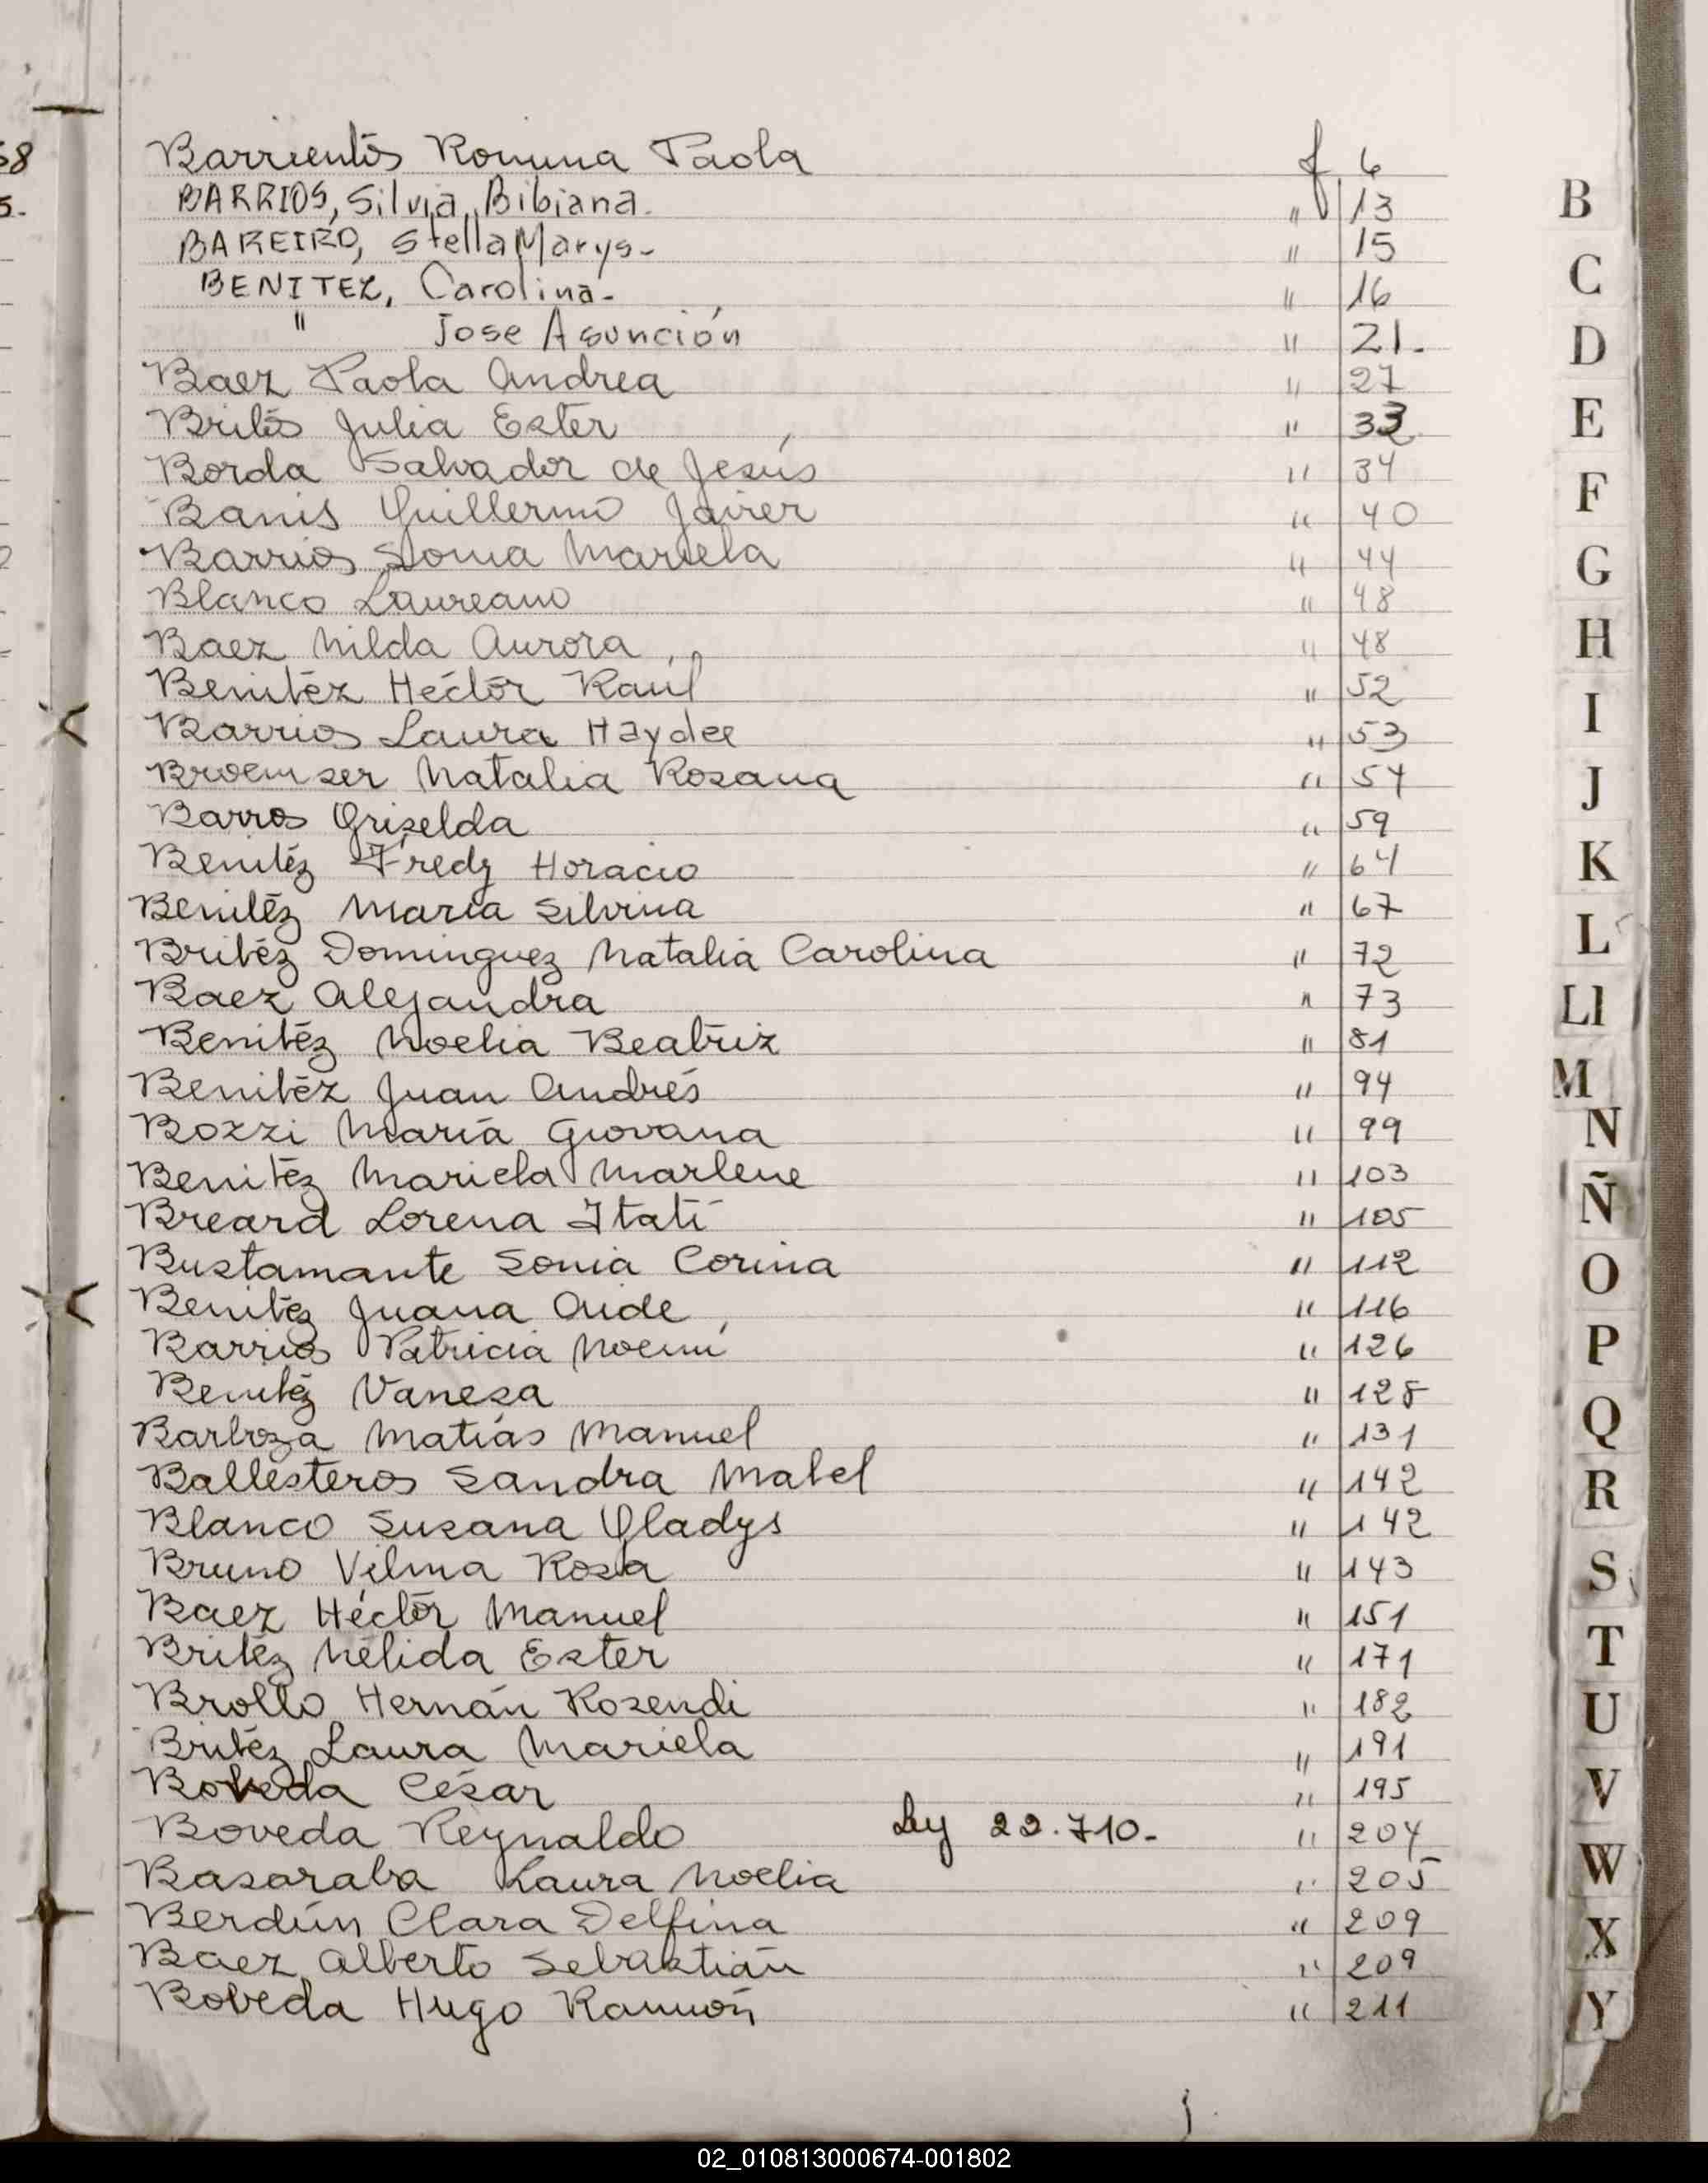 Barrientos Romina Paola f 6
BARRIOS, Silvia, Bibiana. " 13
BAREIRO, Stella Marys- " 15
BENITEZ, Carolina- " 16
" Jose Asunción " 21.
Baez Paola Andrea " 27
Brites Julia Ester " 33
Borda Salvador de Jesús " 34
Banis Guillermo Javier " 40
Barrios Sonia Mariela " 44
Blanco Laureano " 48
Baez Nilda Aurora " 48
Benitez Héctor Raúl " 52
Barrios Laura Haydee " 53
Broemser Natalia Rosana " 54
Barros Griselda " 59
Benitez Fredy Horacio " 64
Benitez Maria Silvina " 67
Britez Dominguez Natalia Carolina " 72
Baez Alejandra " 73
Benitez Noelia Beatriz " 81
Benitez Juan Andrés " 94
Bozzi María Giovana " 99
Benitez Mariela Marlene " 103
Breard Lorena Itatí " 105
Bustamante Sonia Corina " 112
Benitez Juana Aide " 116
Barrios Patricia Noemí " 126
Benitez Vanesa " 128
Barboza Matías Manuel " 131
Ballesteros Sandra Mabel " 142
Blanco Susana Gladys " 142
Bruno Vilma Rosa " 143
Baez Héctor Manuel " 151
Britez Nélida Ester " 171
Brollo Hernán Rosendi " 182
Britez Laura Mariela " 191
Boveda César " 195
Boveda Reynaldo Ley 22.710.- " 204
Basaraba Laura Noelia " 205
Berdún Clara Delfina " 209
Baez Alberto Sebastián " 209
Bobeda Hugo Ramón " 211
B
C
D
E
F
G
H
I
J
K
L
Ll
M
N
Ñ
O
P
Q
R
S
T
U
V
W
X
Y
02_010813000674-001802